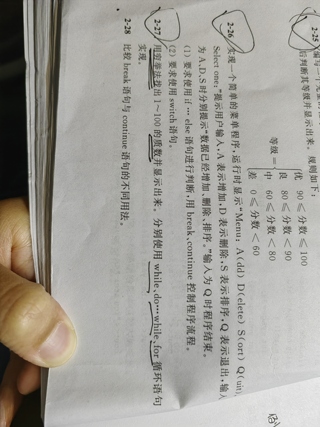 2-25
后判断其等级并显示出来。规则如下：
优 90≤分数≤100
良 80≤分数＜90
等级＝
中 60≤分数＜80
差 0≤分数＜60
2-26 实现一个简单的菜单程序，运行时显示“Menu: A(dd) D(elete) S(ort) Q(uit),
Select one:”提示用户输入，A表示增加，D表示删除，S表示排序，Q表示退出，输入
为A、D、S时分别提示“数据已经增加、删除、排序。”输入为Q时程序结束。
(1) 要求使用if…else语句进行判断，用break、continue控制程序流程。
(2) 要求使用switch语句。
2-27 用穷举法找出1～100的质数并显示出来。分别使用while、do…while、for循环语句
实现。
2-28 比较break语句与continue语句的不同用法。